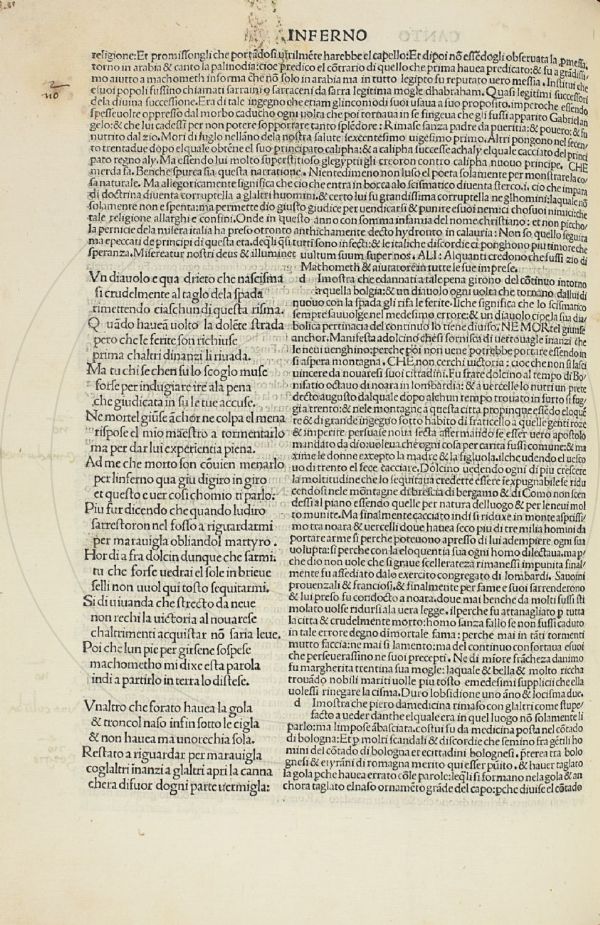 INFERNO
religione: Et promissongli che portādosi uirilmēte harebbe el capello: Et dipoi nō essēdogli obseruata la
torno in arabia & canto la palinodia: cioe predico el cōtrario di quello che prima hauea predicato: &
mo aiuto a machometh in forma che nō solo in arabia ma in tutto legipto fu reputato uero messia.
e suoi popoli fussino chiamati sarraini o sarraceni da sarra legitima mogle dhabraham. Quasi legitimi successori
della diuina successione. Era di tale ingegno che etiam glincomodi suoi usaua a suo proposito.
spesse uolte oppresso dal morbo caduco ogni uolta che poi tornaua in se fingeua che gli fussi apparito Gabriel
gelo: & che lui cadessi per non potere sopportare tanto splēdore: Rimase sanza padre da pueritia: & pouero: & fu
nutrito dal zio. Mori di luglo nellāno della nostra salute sexcentesimo uigesimo primo. Altri pongono
to trentadue dopo el quale obtēne el suo principato calipha: & a calipha successe achaly el quale cacciato
pato regno aly. Ma essendo lui molto superstitioso glegyptii gli creoron contro calipha nuouo principe. CHE
merda fa. Benche spurca sia questa narratione. Nientedimeno non luso el poeta solamente per monstrare la
sa naturale. Ma allegoricamente significa che cio che entra in bocca allo scismatico diuenta sterco.i. cio che
di doctrina diuenta corruptella a glaltri huomini. & certo lui fu grandissima corruptella ne glhomini: laquale nō
solamente non e spenta: ma permette dio giusto giudice per uendicarsi & punire e suoi nemici chosuoi nimici: che
tale religione allarghi e confini. Onde in questo anno con somma infamia del nome christiano: et non piccho
la pernicie della misera italia ha preso otronto anthichamente decto hydronto in calauria: Non so quello seguita
ma e peccati de principi di questa eta. deqli qsi tutti sono infecti: & le italiche discordie ci ponghono piu timore che
speranza. Misereatur nostri deus & illuminet uultum suum super nos. ALI: Alquanti credono che fussi zio di
Machometh & aiutatore in tutte le sue imprese.
Vn diauolo e qua drieto che nascisma
si crudelmente al taglo dela spada
rimettendo ciaschun di questa risma.
Quādo hauen uolto la dolēte strada
pero che le ferite son richiuse
prima chaltri dinanzi li riuada.
Ma tu chi se chen su lo scoglo muse
forse per indugiare ire ala pena
che giudicata in su le tue accuse.
Ne mortel giūse āchor ne colpa el mena
rispose el mio maestro a tormentarlo
ma per dar lui experientia piena.
Ad me che morto son cōuien menarlo
per linferno qua giu di giro in giro
et questo e uer cosi chomio ti parlo:
Piu fur dicendo che quando ludiro
sarrestoron nel fosso a riguardarmi
per marauigla obliandol martyro.
Hor di a fra dolcin dunque che sarmi,
tu che forse uedrai el sole in brieue
selli non uuol qui tosto seguitarmi.
Si di uiuanda che strecto da neue
non rechi la uictoria al nouarese
chaltrimenti acquistar nō saria leue.
Poi che lun pie per girsene sospese
machometho mi dixe esta parola
indi a partirlo in terra lo distese.
Vnaltro che forato hauea la gola
& troncol naso infin sotto le cigla
& non hauea ma unorechia sola.
Restato a riguardar per marauigla
coglaltri inanzi a glaltri apri la canna
chera difuor dogni parte uermigla:
d Imostra che edannati a tale pena girono del cōtinuo intorno
a quella bolgia: & un diauolo ogni uolta che tornano dallui di
nuouo con la spada gli rifa le ferite. Il che significa che lo scismatico
sempre sauuolge nel medesimo errore: & un diauolo cioe la sua dia
bolica pertinacia del continuo lo tiene diuiso. NE MORtel giunse
anchor. Manifesta adolcino chesi fornisca di uettouagle inanzi che
le neui uenghino: perche poi non ue ne potrebbe portare essendo in
si aspera montagna. CHE non cerchi uictoria: cioe che non si lasci
uincere da nouaresi suoi cittadini. Fu frate dolcino al tempo di Bo
nifatio octauo di noara in lombardia: & a uercelle lo nutri un prete
decto augusto dal quale dopo alchun tempo trouato in furto si fug
gi a trento: & nele montagne a questa citta propinque essēdo eloquē
te & di grande ingegno sotto habito di fraticello a quelle genti roze
& imperite persuase noua secta affermādo se esser uero apostolo
mandato da dio: uolea che ogni cosa per carita fussi comune: & ma
xime le donne excepto la madre & la figluola. ilche udendo el uesco
uo di trento el fece cacciare. Dolcino uedendo ogni di piu crescere
la moltitudine che lo sequitaua credette essere isexpugnabile se ridu
cendosi nele mōtagne di brescia di bergamo & di Como non scen
dessi al piano essendo quelle per natura del luogo & per le neui mol
to munite. Ma finalmente cacciato indi si riduxe in monte asprissi
mo tra noara & uercelli doue hauea seco piu di tre milia homini da
portare arme si perche poteuono apresso di lui adempiere ogni sua
uolupta: si perche con la eloquentia sua ogni homo dilectaua. ma p
che dio non uole che si graue scelleratezza rimanessi impunita final/
mente fu assediato dalo exercito congregato di lombardi. Sauoini
prouenzali & franciosi. & finalmente per fame e suoi sarrenderono
& lui preso fu condocto a noara. doue mai benche da molti fussi sti
molato uolse ridursi ala uera legge. il perche fu attanagliato p tutta
la citta & crudelmente morto: homo sanza fallo se non fussi caduto
in tale errore degno di mortale fama: perche mai in tāti tormenti
mutto faccia: ne mai si lamento: ma del continuo confortaua e suoi
che perseuerassino ne suoi precepti. Ne di mīore frācheza danimo
fu margherita trentina sua mogle: laquale & bella & molto riccha
trouādo nobili mariti uolle piu tosto e medesimi supplicii che ella
uolessi rinegare la cisma. Duro lobsidione uno āno & locisma due.
d Imostra che piero da medicina rimaso con glaltri come stupe/
facto a ueder danthe el quale era in quel luogo nō solamente li
parlo: ma limpose ābasciata. costui fu da medicina posta nel cōtado
di bologna: Et p molti scandali & discordie che semino fra gētili ho
mini del cōtado di bologna et e cittadini bolognesi. & prerea tra bolo
gnesi & e tyrāni di romagna merito qui esser pūito. & hauer taglato
la gola pche hauea errato cōle parole: leqli si formano nela gola & an
chora taglato el naso ornamēto grāde del capo: pche diuise el cōtado